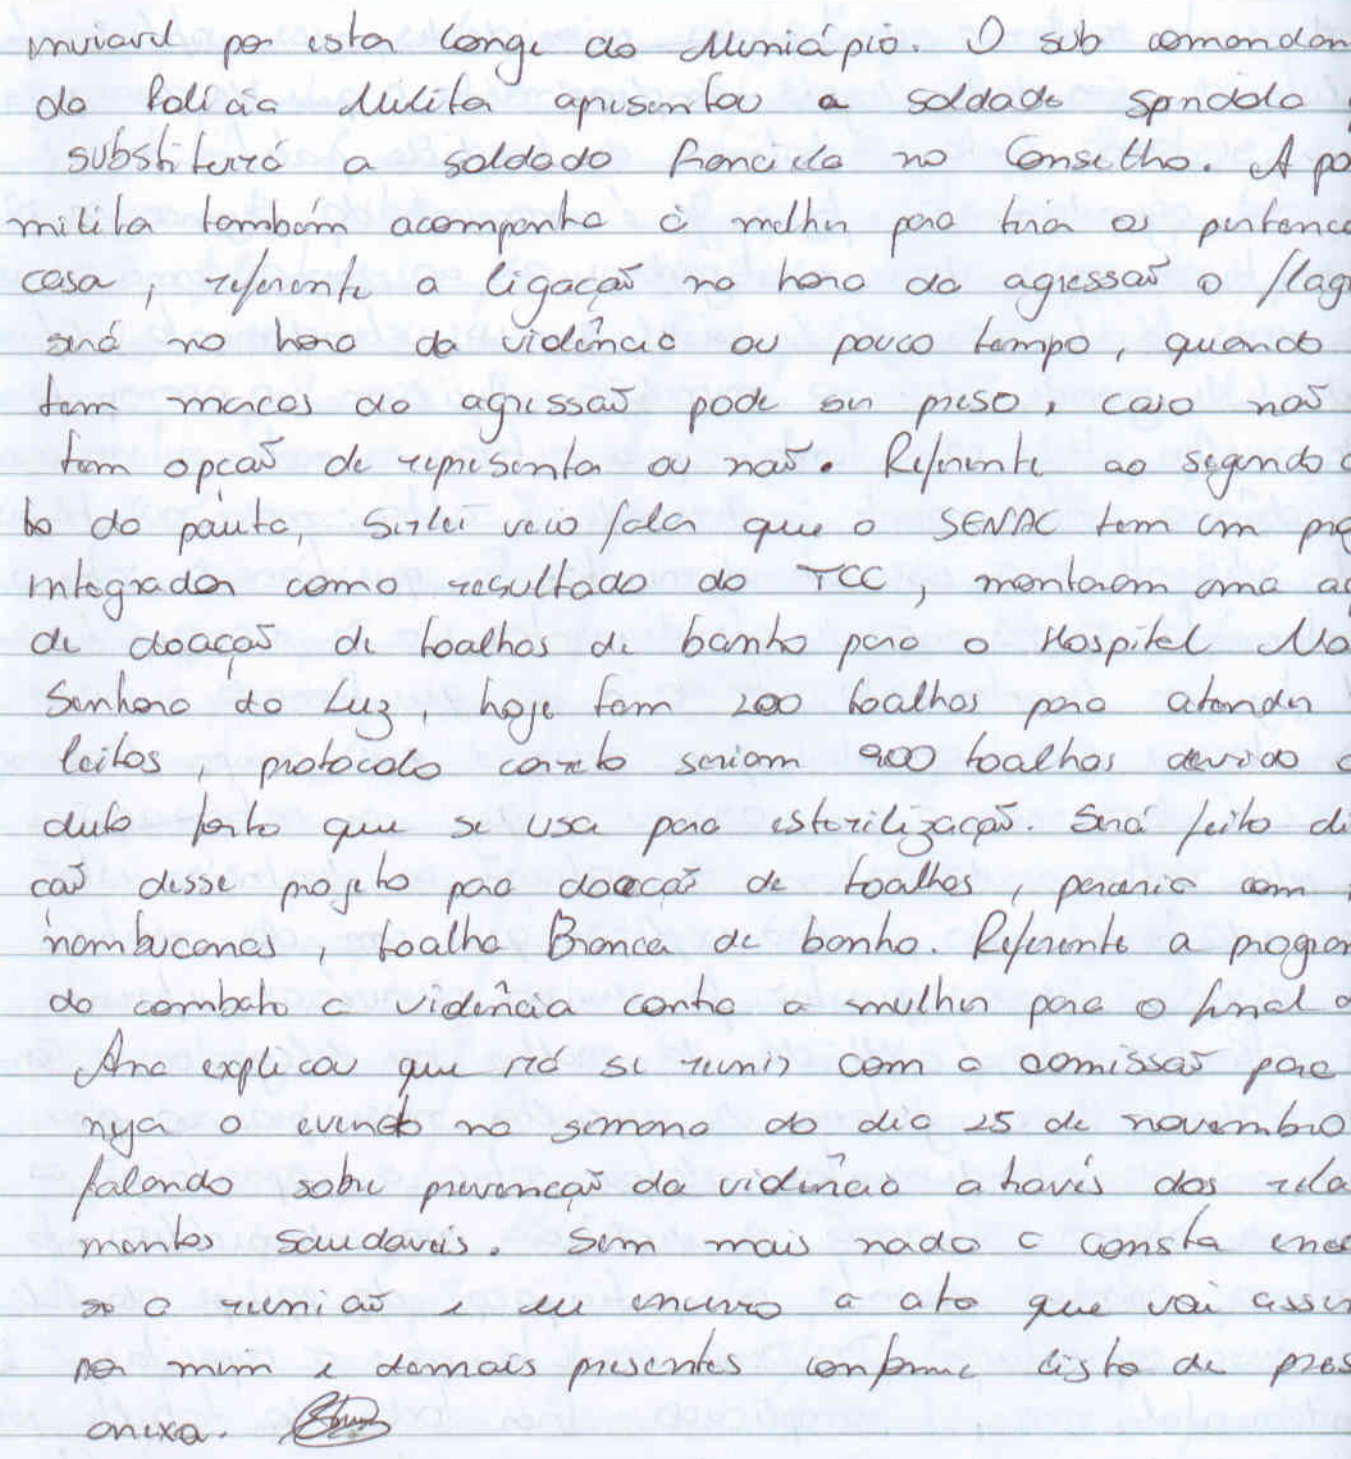 inviavel por estar longe do Municápio. O sub comandan
da Polícia Militar apresentou a soldado Spindola
substituirá a soldado Francila no Conselho. A po
militar também acompanha à mulher para tirar os pertence
casa, referente a ligação na hora da agressão o flagr
será na hora da violência ou pouco tempo, quando
tem marcas da agressão pode ser preso, caso não
tem opção de representar ou não. Referente ao segundo
to da pauta, Sirlei veio falar que o SENAC tem um pro
integrador como resultado do TCC, montaram uma aç
de doação de toalhas de banho para o Hospital No
Senhora da Luz, hoje tem 200 toalhas para atender
leitos, protocolo correto seriam 900 toalhas devido
duto forte que se usa para esterilização. Será feito di
ção desse projeto para doação de toalhas, parceria com
nambucanas, toalha Branca de banho. Referente a program
do combate a violência contra a mulher para o final d
Ana explicou que irá se reunir com a comissão para
nejar o evento na semana do dia 25 de novembro
falando sobre prevenção da violência através dos rela
mentos saudáveis. Sem mais nada a consta ence
se a reunião e eu encerro a ata que vai assin
por mim e demais presentes conforme lista de pres
anexa.